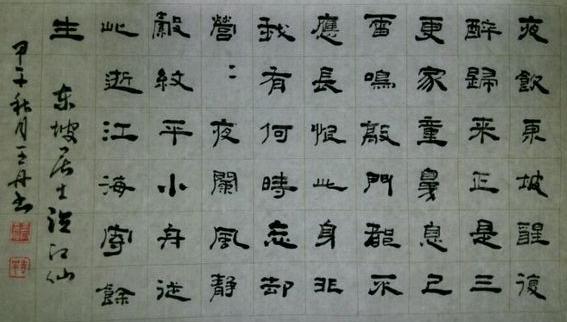 夜飲東坡醒復
醉歸来正是三
更家童鼻息已
雷鳴敲門都不
應長恨此身非
我有何時忘却
營〻夜闌風靜
縠紋平小舟從
此逝江海寄餘
生
东坡居士臨江仙
甲午秋月